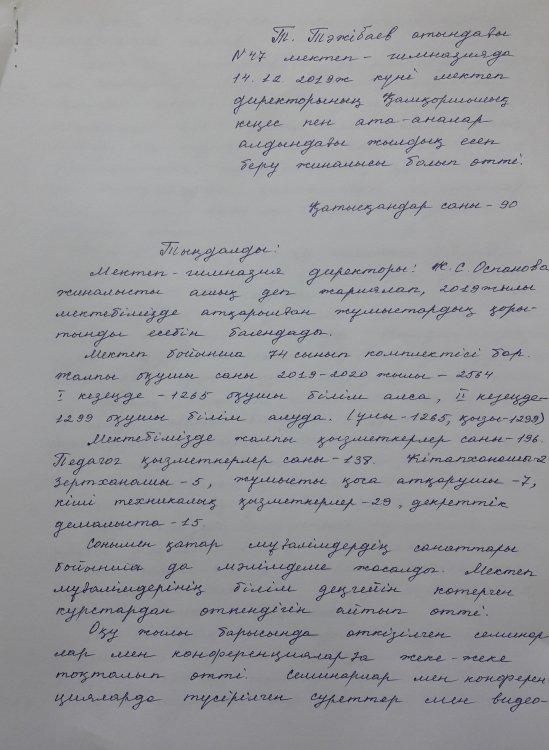 Т. Тәжібаев атындағы
N 47 мектеп - гимназияда
14.12.2019ж күні мектеп
директорының Қамқоршылық
кеңес пен ата-аналар
алдындағы жылдық есеп
беру жиналысы болып өтті.
Қатысқандар саны - 90
Тыңдалды:
Мектеп-гимназия директоры: Ж.С. Оспанова
жиналысты ашық деп жариялап, 2019 жылы
мектебімізде атқарылған жұмыстардың қоры-
тынды есебін баяндады.
Мектеп бойынша 74 сынып комплектісі бар.
Жалпы оқушы саны 2019-2020 жылы - 2564
I кезеңде - 1265 оқушы білім алса, II кезеңде-
1299 оқушы білім алуда. (ұлы-1265, қызы-1299)
Мектебімізде жалпы қызметкерлер саны-196.
Педагог қызметкерлер саны-138. Кітапханашы-2
Зертханашы-5, жұмысты қоса атқарушы-7,
кіші техникалық қызметкерлер-29, декреттік
демалыста-15.
Сонымен қатар мұғалімдердің санаттары
бойынша да мәлімдеме жасалды. Мектеп
мұғалімдерінің білім деңгейін көтерген
курстардан өткендігін айтып өтті.
Оқу жылы барысында өткізілген семинар
лар мен конференцияларға жеке-жеке
тоқталып өтті. Семинарлар мен конферен-
цияларда түсірілген суреттер мен видео-